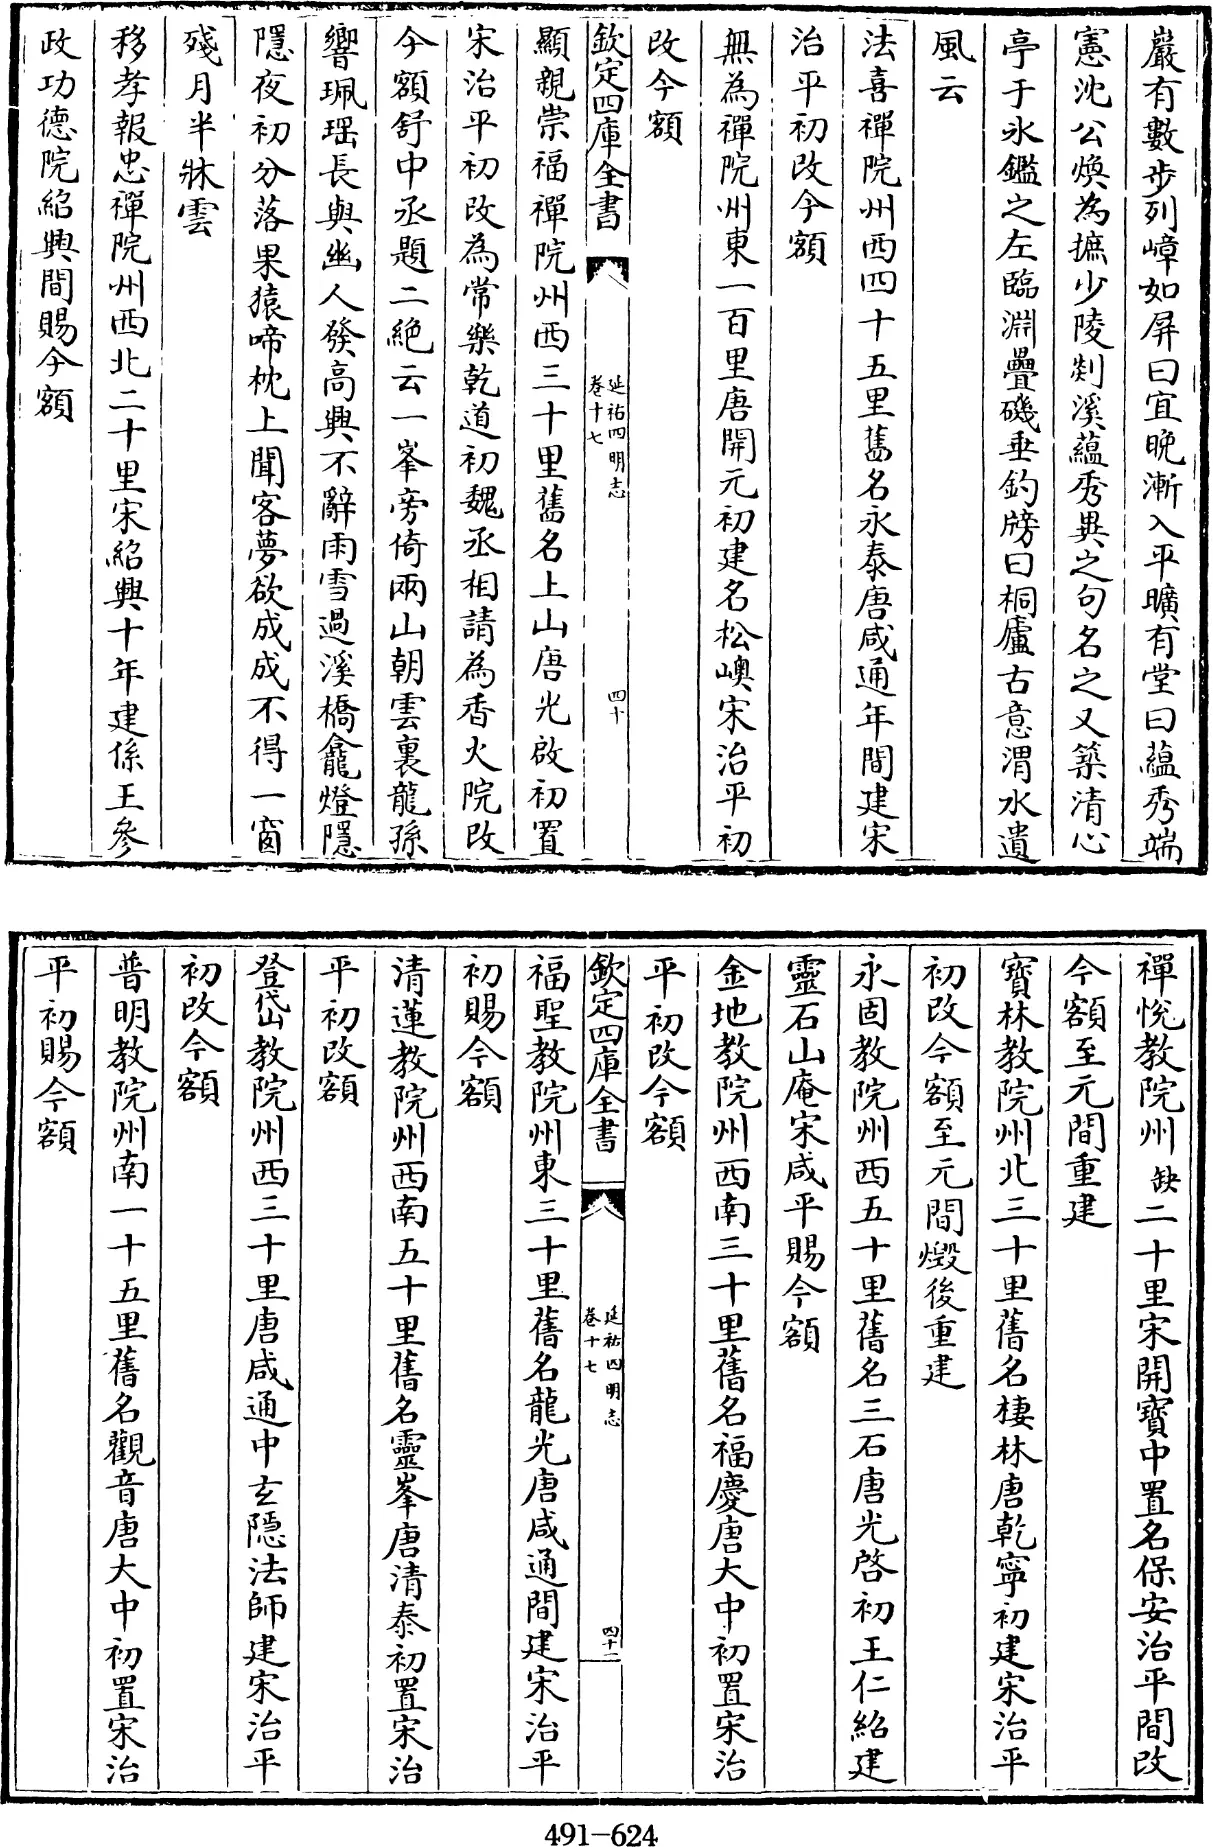 巖有數步列嶂如屏曰宜晚漸入平曠有堂曰蘊秀端
憲沈公煥為摭少陵剡溪蘊秀異之句名之又築清心
亭于氷鑑之左臨淵疊磯垂釣牓曰桐廬古意渭水遺
風云
法喜禪院州西四十五里舊名永泰唐咸通年間建宋
治平初改今額
無為禪院州東一百里唐開元初建名松嶼宋治平初
改今額
欽定四庫全書
延祐四明志
卷十七
四十
顯親崇福禪院州西三十里舊名上山唐光啟初置
宋治平初改為常樂乾道初魏丞相請為香火院改
今額舒中丞題二絕云一峯旁倚兩山朝雲裏龍孫
響珮瑶長與幽人發高興不辭雨雪過溪橋龕燈隱
隱夜初分落果猿啼枕上聞客夢欲成成不得一窗
殘月半牀雲
移孝報忠禪院州西北二十里宋紹興十年建係王參
政功德院紹興間賜今額
禪悅教院州缺二十里宋開寶中置名保安治平間改
今額至元間重建
寶林教院州北三十里舊名棲林唐乾寧初建宋治平
初改今額至元間燬後重建
永固教院州西五十里舊名三石唐光啓初王仁紹建
靈石山庵宋咸平賜今額
金地教院州西南三十里舊名福慶唐大中初置宋治
平初改今額
欽定四庫全書
延祐四明志
卷十七
四十一
福聖教院州東三十里舊名龍光唐咸通間建宋治平
初賜今額
清蓮教院州西南五十里舊名靈峯唐清泰初置宋治
平初改額
登岱教院州西三十里唐咸通中玄隱法師建宋治平
初改今額
普明教院州南一十五里舊名觀音唐大中初置宋治
平初賜今額
491-624